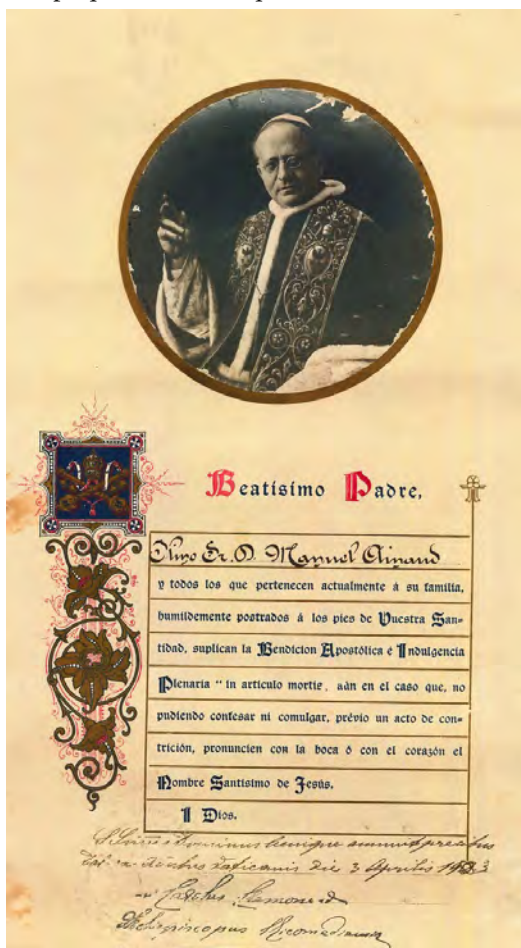 Beatísimo Padre,
Ilmo Sr. D. Manuel Ainaud
y todos los que pertenecen actualmente á su familia,
humildemente postrados á los pies de Vuestra San-
tidad, suplican la Bendicion Apostólica é Indulgencia
Plenaria " in articulo mortis, aún en el caso que, no
pudiendo confesar ni comulgar, prévio un acto de con-
trición, pronuncien con la boca ó con el corazón el
Nombre Santísimo de Jesús.
I Dios.
Dominus benigne annuit precibus
Vaticanis die 3 Aprilis
Archiepiscopus Nicomediensis